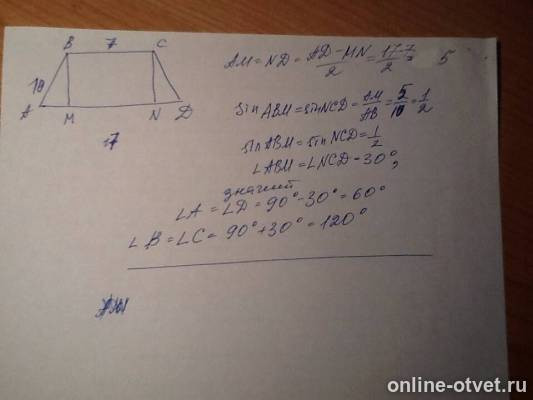 B 7 C
10
A M N D
17
AM = ND = AD - MN / 2 = 17-7 / 2 = 5
sin ABM = sin NCD = AM / AB = 5 / 10 = 1 / 2
sin ABM = sin NCD = 1 / 2
∠ABM = ∠NCD - 30°,
значит
∠A = ∠D = 90° - 30° = 60°
∠B = ∠C = 90° + 30° = 120°
online-otvet.ru